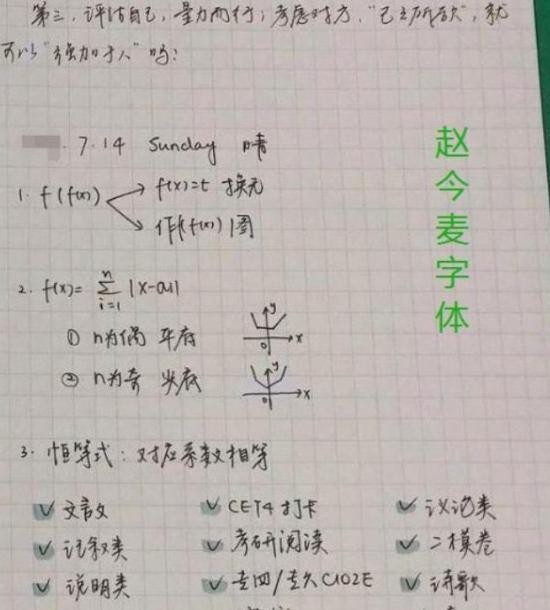 第三,评估自己,量力而行;考虑对方,"己之所欲",就
可以"强加于人"吗?
7.14 Sunday 晴
赵今麦字体
1. f(f(x))
f(x)=t 换元
作|f(x)|图
2. f(x)= n∑i=1 |x-ai|
① n为偶 平底
y
0 x
② n为奇 尖底
y
0 x
3. 恒等式:对应系数相等
文言文 CET4打卡 议论类
记叙类 考研阅读 二模卷
说明类 专四/专八CLOZE 诗歌